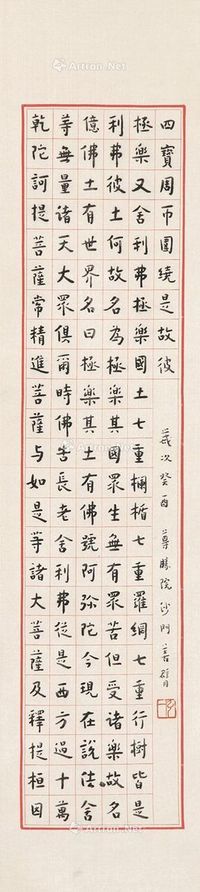 乾陀訶提菩薩常精進菩薩与如是等諸大菩薩及釋提桓因
等無量諸天大眾俱爾時佛告長老舍利弗從是西方過十萬
億佛土有世界名曰極樂其土有佛號阿弥陀今現在說法舍
利弗彼土何故名為極樂其國眾生無有眾苦但受諸樂故名
極樂又舍利弗極樂國土七重欄楯七重羅網七重行樹皆是
四寶周帀圍繞是故彼
歲次癸酉 尊勝院沙門善
Artron.Net
Artron.Net